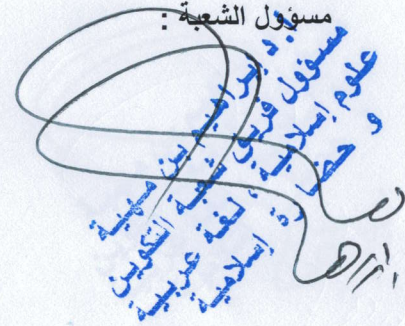 مسؤول الشعبة :
ا. د إبراهيم بن مهية
مسؤول فريق شعبة التكوين
علوم إسلامية، لغة عربية
و حضارة إسلامية